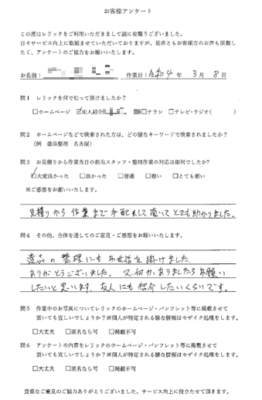 お客様アンケート
この度はレリックをご利用いただきまして誠に有難うございました。
日々サービス向上に取組ませていただいておりますが、是非ともお客様方のお声も頂戴し
たく、アンケートのご協力をお願いいたします。
お名前： 作業日：令和4年 3月 8日
問1 レリックを何で知って頂けましたか？
□ホームページ 知人紹介 □チラシ □テレビ・ラジオ( )
問2 ホームページなどで検索された方は、どの様なキーワードで検索されましたか？
(例 遺品整理 名古屋)
問3 お見積りから作業当日の担当スタッフ・整理作業の対応は如何でしたか？
□大変良かった □良かった □普通 □悪い □とても悪い
※ご感想をお願いいたします。
見積りから作業まで手配して頂いてとても助かりました。
問4 その他、全体を通してのご意見・ご感想をお願いいたします。
遺品の整理にもお世話を掛けました
ありがとうございました。又何かありましたらお願い
したいと思います。友人にも紹介したいくらいです。
問5 作業中のお写真についてレリックのホームページ・パンフレット等に掲載させて
頂いても宜しいでしょうか？※個人が特定される様な情報はモザイク処理をします。
□大丈夫 □匿名なら可 □掲載不可
問6 アンケートの内容をレリックのホームページ・パンフレット等に掲載させて
頂いても宜しいでしょうか？※個人が特定される様な情報はモザイク処理をします。
□大丈夫 □匿名なら可 □掲載不可
貴重なご意見のご協力ありがとうございました。サービス向上に役立たせて頂きます。